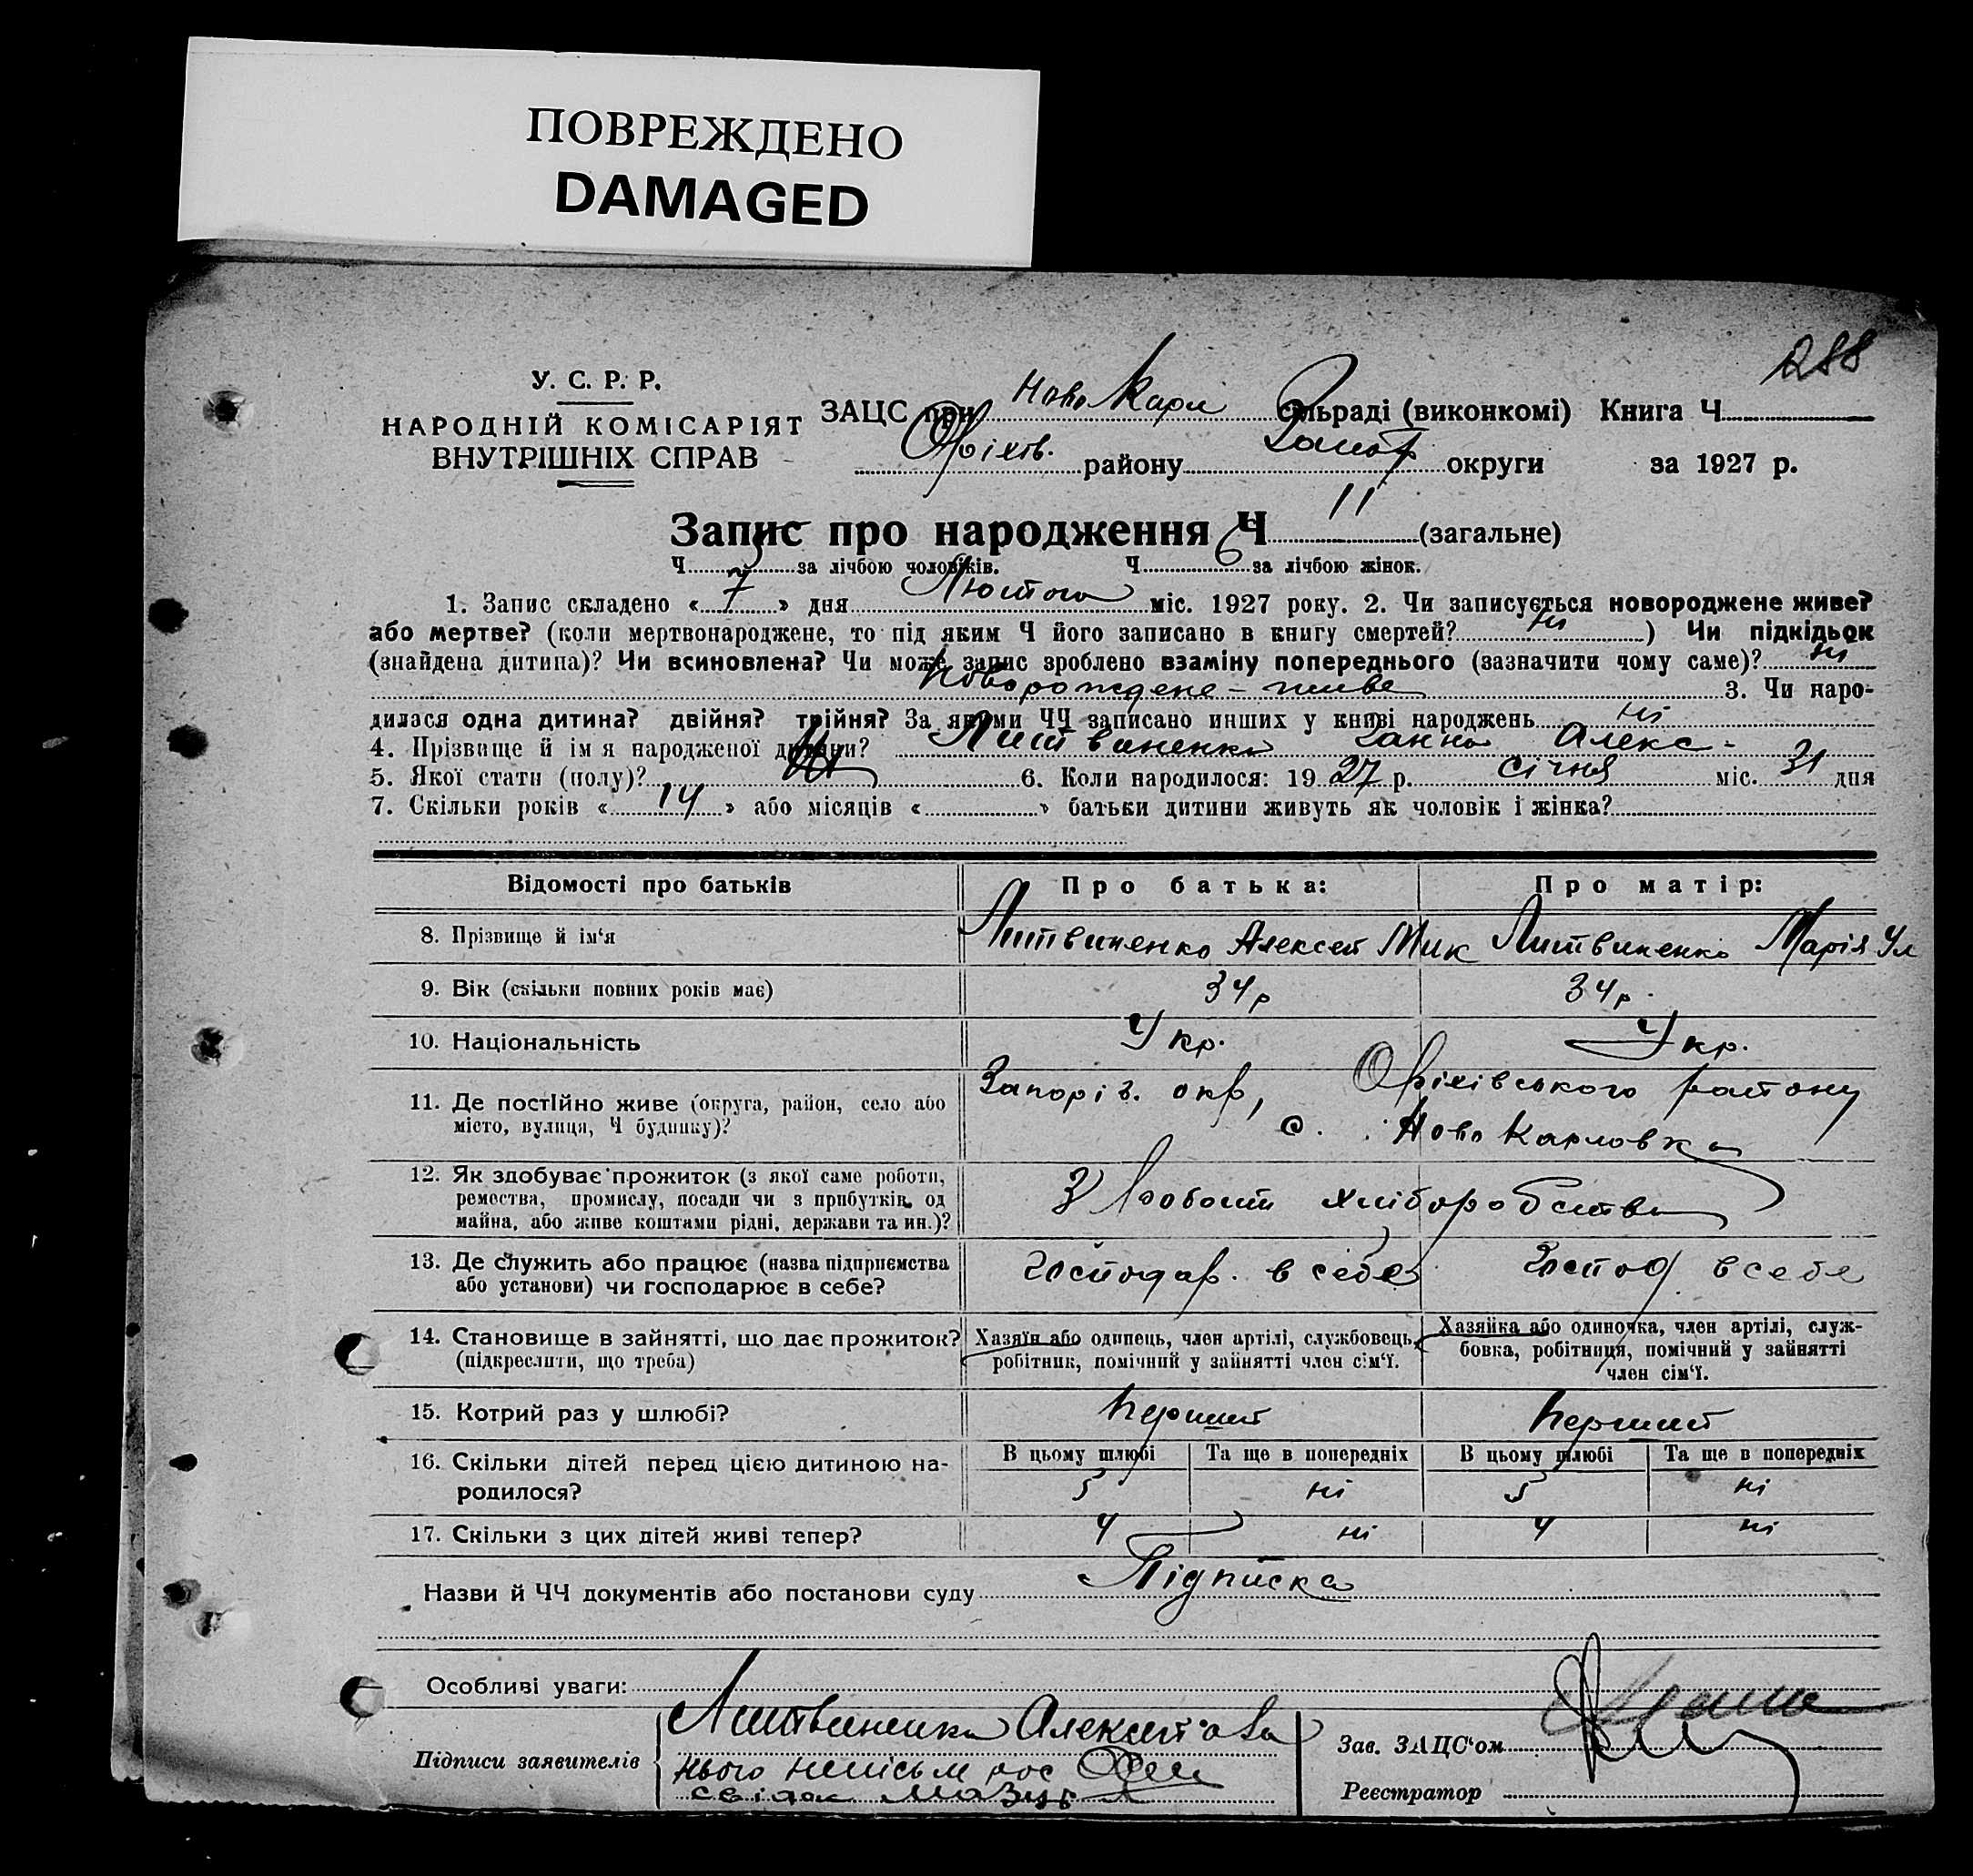 ПОВРЕЖДЕНО
DAMAGED
288
У. С. Р. Р.
НАРОДНІЙ КОМІСАРІЯТ
ВНУТРІШНІХ СПРАВ
ЗАЦС при Ново Карл сільраді (виконкомі) Книга Ч
Оріхів. району Запор округи за 1927 р.
Запис про народження Ч 11 (загальне)
Ч за лічбою чоловіків. Ч 6 за лічбою жінок.
1. Запис складено « 7 » дня Лютого міс. 1927 року. 2. Чи записується новороджене живе?
або мертве? (коли мертвонароджене, то під яким Ч його записано в книгу смертей? ні ) Чи підкідьок
(знайдена дитина)? Чи всиновлена? Чи може запис зроблено взаміну попереднього (зазначити чому саме)? ні
Новорождене - живе 3. Чи наро-
дилася одна дитина? двійня? трійня? За якими ЧЧ записано инших у книзі народжень ні
4. Прізвище й ім я народженої дитини? Литвиненко Ганна Алекс-
5. Якої стати (полу)? Ж 6. Коли народилося: 19 27 р. січня міс. 31 дня
7. Скільки років « 14 » або місяців « » батьки дитини живуть як чоловік і жінка?
Відомості про батьків Про батька: Про матір:
8. Прізвище й ім‘я Литвиненко Алексей Мик Литвиненко Марія Ул
9. Вік (скільки повних років має) 34р 34р.
10. Національність Укр. Укр.
11. Де постійно живе (округа, район, село або місто, вулиця, Ч будинку)? Запоріз. окр, Оріхівського району
с. Ново Карловка
12. Як здобуває прожиток (з якої саме роботи,
ремества, промислу, посади чи з прибутків, од
майна, або живе коштами рідні, держави та ин.)? З роботи хліборобства
13. Де служить або працює (назва підприємства
або установи) чи господарює в себе? господар. в себе господ. в себе
14. Становище в зайнятті, що дає прожиток?
(підкреслити, що треба)
Хазяїн або одинець, член артілі, службовець,
робітник, помічний у зайнятті член сім‘ї.
Хазяйка або одиночка, член артілі, служ-
бовка, робітниця, помічний у зайнятті
член сім‘ї.
15. Котрий раз у шлюбі? перший перший
16. Скільки дітей перед цією дитиною на-
родилося?
В цьому шлюбі Та ще в попередніх В цьому шлюбі Та ще в попередніх
5 ні 5 ні
17. Скільки з цих дітей живі тепер? 4 ні 4 ні
Назви й ЧЧ документів або постанови суду Підписка
Особливі уваги:
Підписи заявителів Литвиненко Алексий а за
нього неписьм рос
свідок
Зав. ЗАЦС‘ом
Реєстратор